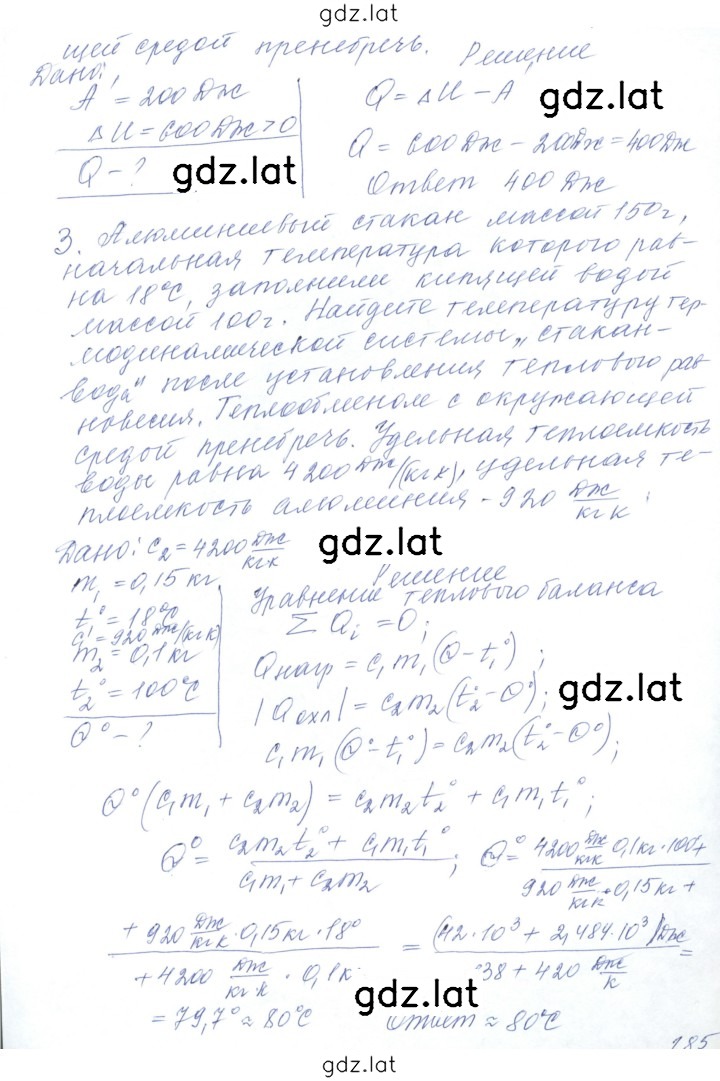 gdz.lat
щей средой пренебречь. Решение
Дано:
A' = 200 Дж
Q = ΔU – A'
gdz.lat
ΔU = 600 Дж > 0
Q = 600 Дж – 200 Дж = 400 Дж
Q – ?
gdz.lat
Ответ 400 Дж
3. Алюминиевый стакан массой 150г,
начальная температура которого рав-
на 18°C, заполнили кипящей водой
массой 100г. Найдите температуру тер-
модинамической системы „стакан-
вода“ после установления теплового рав-
новесия. Теплообменом с окружающей
средой пренебречь. Удельная теплоемкость
воды равна 4200 Дж/(кг К), удельная те-
плоемкость алюминия - 920 Дж/кг К.
Дано: c₂ = 4200 Дж/кг К
gdz.lat
m₁ = 0,15 кг
Решение
Уравнение теплового баланса
t₁° = 18°C
Σ Qᵢ = 0;
c₁ = 920 Дж/(кг К)
m₂ = 0,1 кг
Qнагр = c₁m₁(Θ – t₁°);
t₂° = 100°C
|Qохл| = c₂m₂(t₂° – Θ°);
gdz.lat
Θ° – ?
c₁m₁(Θ° – t₁°) = c₂m₂(t₂° – Θ°);
Θ°(c₁m₁ + c₂m₂) = c₂m₂t₂° + c₁m₁t₁°;
Θ° = (c₂m₂t₂° + c₁m₁t₁°)/(c₁m₁ + c₂m₂); Θ° = 4200 Дж/кг К · 0,1 кг · 100° +
920 Дж/кг К · 0,15 кг +
+ 920 Дж/кг К · 0,15 кг · 18° = (42·10³ + 2,484·10³) Дж =
+ 4200 Дж/кг·К · 0,1 к
138 + 420 Дж/К
gdz.lat
= 79,7° ≈ 80°C ответ ≈ 80°C
185
gdz.lat